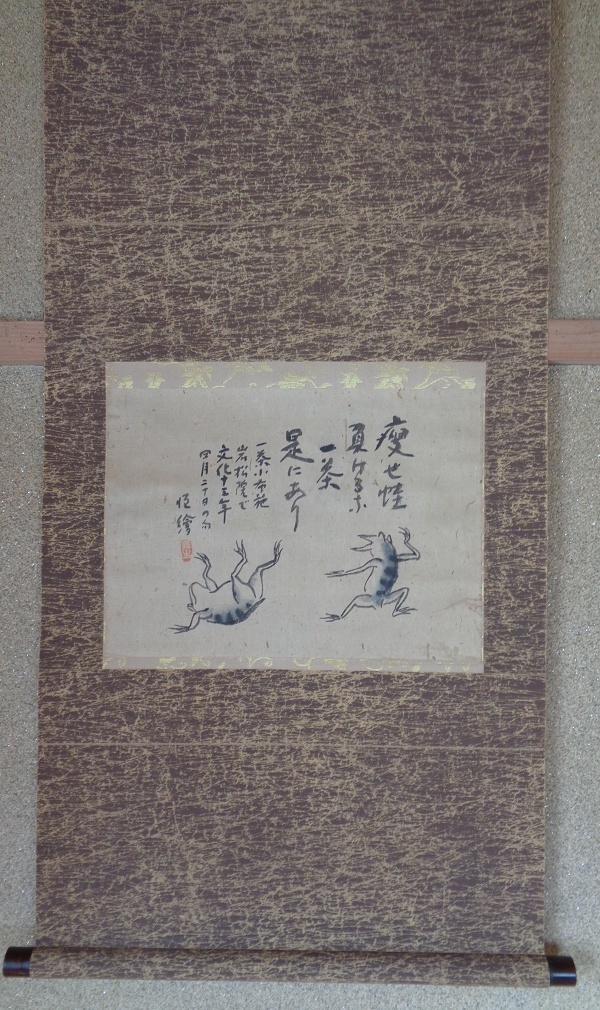 瘦せ蛙
負けるな
一茶
是にあり
一茶小布施
岩松院で
文化十三年
四月二十日の句
恒繪